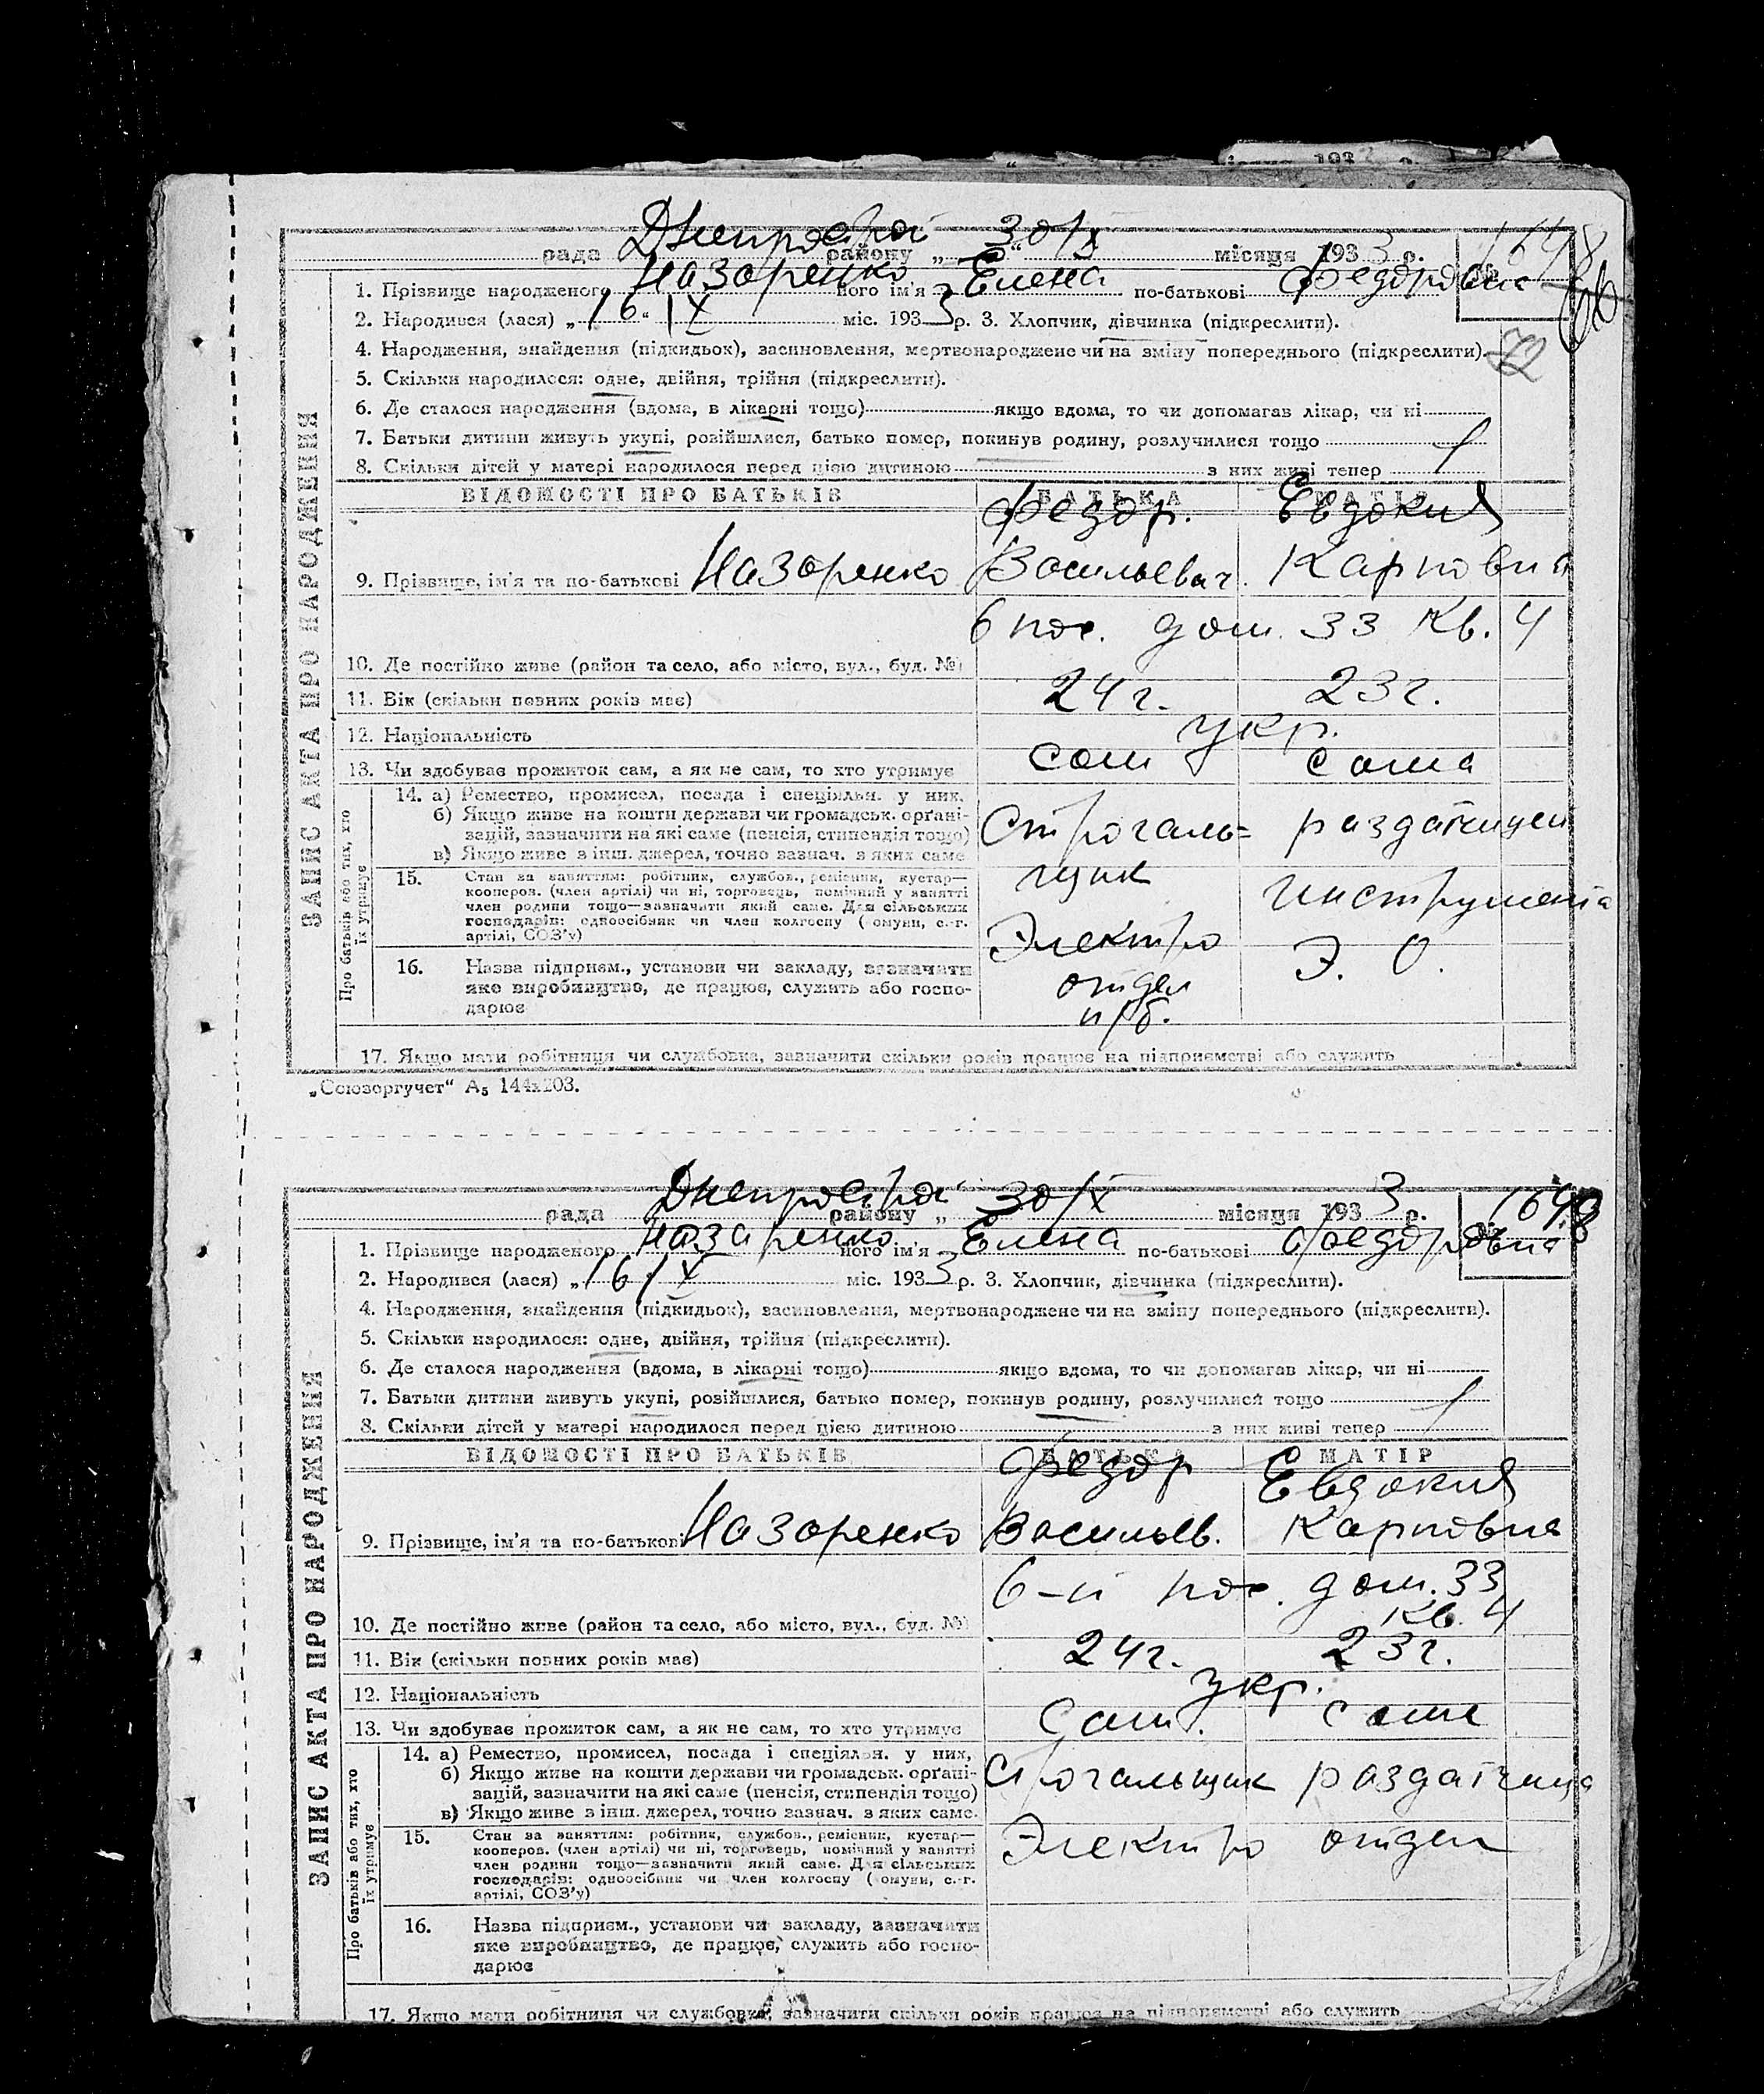 місяця 193
Днепрострой 30/IX 1648
рада району „ “ місяця 1933 р. №
1. Прізвище народженого Назаренко його ім'я Елена по-батькові Федоровна
2. Народився (лася) „16“ IX міс. 1933 р. 3. Хлопчик, дівчинка (підкреслити).
4. Народження, знайдення (підкидьок), засиновлення, мертвонароджене чи на зміну попереднього (підкреслити). 72
5. Скільки народилося: одне, двійня, трійня (підкреслити).
6. Де сталося народження (вдома, в лікарні тощо) якщо вдома, то чи допомагав лікар, чи ні
7. Батьки дитини живуть укупі, розійшлися, батько помер, покинув родину, розлучилися тощо
8. Скільки дітей у матері народилося перед цією дитиною з них живі тепер 1
ЗАПИС АКТА ПРО НАРОДЖЕННЯ
ВІДОМОСТІ ПРО БАТЬКІВ БАТЬКА МАТІР
Федор. Евдокия
9. Прізвище, ім'я та по-батькові Назаренко Васильевич. Карповна
6 пос. дом. 33 Кв. 4
10. Де постійно живе (район та село, або місто, вул., буд. №)
11. Вік (скільки повних років має) 24 г. 23 г.
12. Національність укр.
13. Чи здобуває прожиток сам, а як не сам, то хто утримує сам сама
Про батьків або тих, хто їх утримує
14. а) Ремество, промисел, посада і спеціяльн. у них,
б) Якщо живе на кошти держави чи громадськ. орґані-
зацій, зазначити на які саме (пенсія, стипендія тощо)
в) Якщо живе з інш. джерел, точно зазнач. з яких саме
Строгаль= раздатчицей
щик инструмента
15. Стан за заняттям: робітник, службов., ремісник, кустар—
кооперов. (член артілі) чи ні, торговець, помічний у занятті
член родини тощо—зазначити який саме. Для сільських
господарів: одноосібник чи член колгоспу (комуни, с.-г.
артілі, СОЗ'у)
Электро Э. О.
отдел
16. Назва підприєм., установи чи закладу, зазначити
яке виробництво, де працює, служить або госпо-
дарює
17. Якщо мати робітниця чи службовка, зазначити скільки років працює на підприємстві або служить
„Союзоргучет“ А₅ 144x203.
Днепрострой 30/IX 1648
рада району „ місяця 1933 р. №
1. Прізвище народженого Назаренко його ім'я Елена по-батькові Федоровна
2. Народився (лася) „16/IX міс. 1933 р. 3. Хлопчик, дівчинка (підкреслити).
4. Народження, знайдення (підкидьок), засиновлення, мертвонароджене чи на зміну попереднього (підкреслити).
5. Скільки народилося: одне, двійня, трійня (підкреслити).
6. Де сталося народження (вдома, в лікарні тощо) якщо вдома, то чи допомагав лікар, чи ні
7. Батьки дитини живуть укупі, розійшлися, батько помер, покинув родину, розлучилися тощо
8. Скільки дітей у матері народилося перед цією дитиною з них живі тепер 1
ЗАПИС АКТА ПРО НАРОДЖЕННЯ
ВІДОМОСТІ ПРО БАТЬКІВ БАТЬКА МАТІР
Федор Евдокия
9. Прізвище, ім'я та по-батькові Назаренко Васильев. Карповна
6-й пос. дом. 33
Кв. 4
10. Де постійно живе (район та село, або місто, вул., буд. №)
11. Вік (скільки повних років має) 24 г. 23 г.
12. Національність укр.
13. Чи здобуває прожиток сам, а як не сам, то хто утримує Сам. сама
Про батьків або тих, хто їх утримує
14. а) Ремество, промисел, посада і спеціялн. у них,
б) Якщо живе на кошти держави чи громадськ. орґані-
зацій, зазначити на які саме (пенсія, стипендія тощо)
в) Якщо живе з інш. джерел, точно зазнач. з яких саме.
Строгальщик раздатчица
15. Стан за заняттям: робітник, службов., ремісник, кустар—
кооперов. (член артілі) чи ні, торговець, помічний у занятті
член родини тощо—зазначити який саме. Для сільських
господарів: одноосібник чи член колгоспу (комуни, с.-г.
артілі, СОЗ'у)
Электро отдел
16. Назва підприєм., установи чи закладу, зазначити
яке виробництво, де працює, служить або госпо-
дарює
17. Якщо мати робітниця чи службовка, зазначити скільки років працює на підприємстві або служить